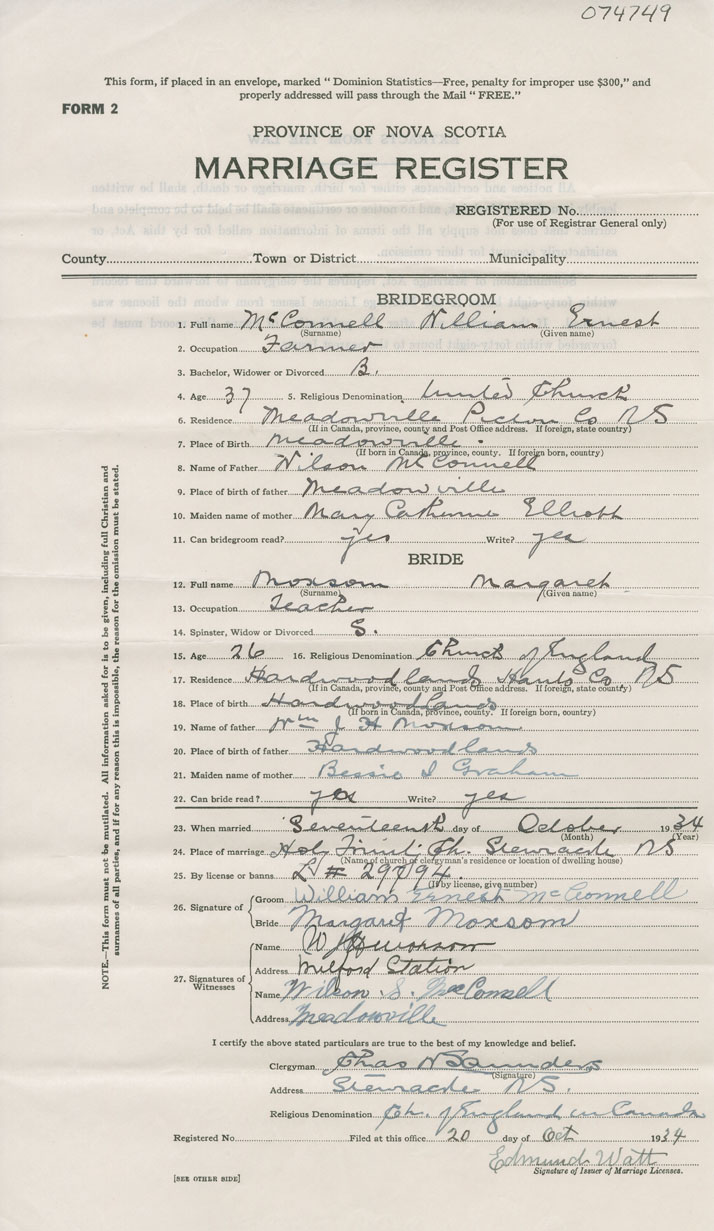 074749
This form, if placed in an envelope, marked " Dominion Statistics—Free, penalty for improper use $300," and
properly addressed will pass through the Mail " FREE."
FORM 2
PROVINCE OF NOVA SCOTIA
MARRIAGE REGISTER
REGISTERED No.
(For use of Registrar General only)
County Town or District Municipality
BRIDEGROOM
1. Full name McConnell William Ernest
(Surname) (Given name)
2. Occupation Farmer
3. Bachelor, Widower or Divorced B.
4. Age 37 5. Religious Denomination United Church
6. Residence Meadowville Pictou Co NS
(If in Canada, province, county and Post Office address. If foreign, state country)
7. Place of Birth Meadowville
(If born in Canada, province, county. If foreign born, country)
8. Name of Father Wilson McConnell
9. Place of birth of father Meadowville
10. Maiden name of mother Mary Catherine Elliott
11. Can bridegroom read? yes Write? yes
BRIDE
12. Full name Moxsom Margaret
(Surname) (Given name)
13. Occupation Teacher
14. Spinster, Widow or Divorced S.
15. Age 26 16. Religious Denomination Church of England
17. Residence Hardwoodlands Hants Co NS
(If in Canada, province, county and Post Office address. If foreign, state country)
18. Place of Birth Hardwoodlands
(If born in Canada, province, county. If foreign born, country)
19. Name of father Wm J H Moxsom
20. Place of birth of father Hardwoodlands
21. Maiden name of mother Bessie I Graham
22. Can bride read? yes Write? yes
23. When married Seventeenth day of October 1934
(Month) (Year)
24. Place of marriage Holy Trinity Ch. Stewiacke NS
(Name of church or clergyman's residence or location of dwelling house)
25. By license or banns L # 29794
(If by license, give number)
26. Signature of Groom William Ernest McConnell
Bride Margaret Moxsom
27. Signatures of Witnesses Name
Address Milford Station
Name Wilson S. McConnell
Address Meadowville
I certify the above stated particulars are true to the best of my knowledge and belief.
Clergyman Chas N Saunders
(Signature)
Address Stewiacke NS.
Religious Denomination Ch. of England in Canada
Registered No. Filed at this office 20 day of Oct 1934
Edmund Watt
Signature of Issuer of Marriage Licenses.
[SEE OTHER SIDE]
NOTE.—This form must not be mutilated. All information asked for is to be given, including full Christian and
surnames of all parties, and if for any reason this is impossible, the reason for the omission must be stated.